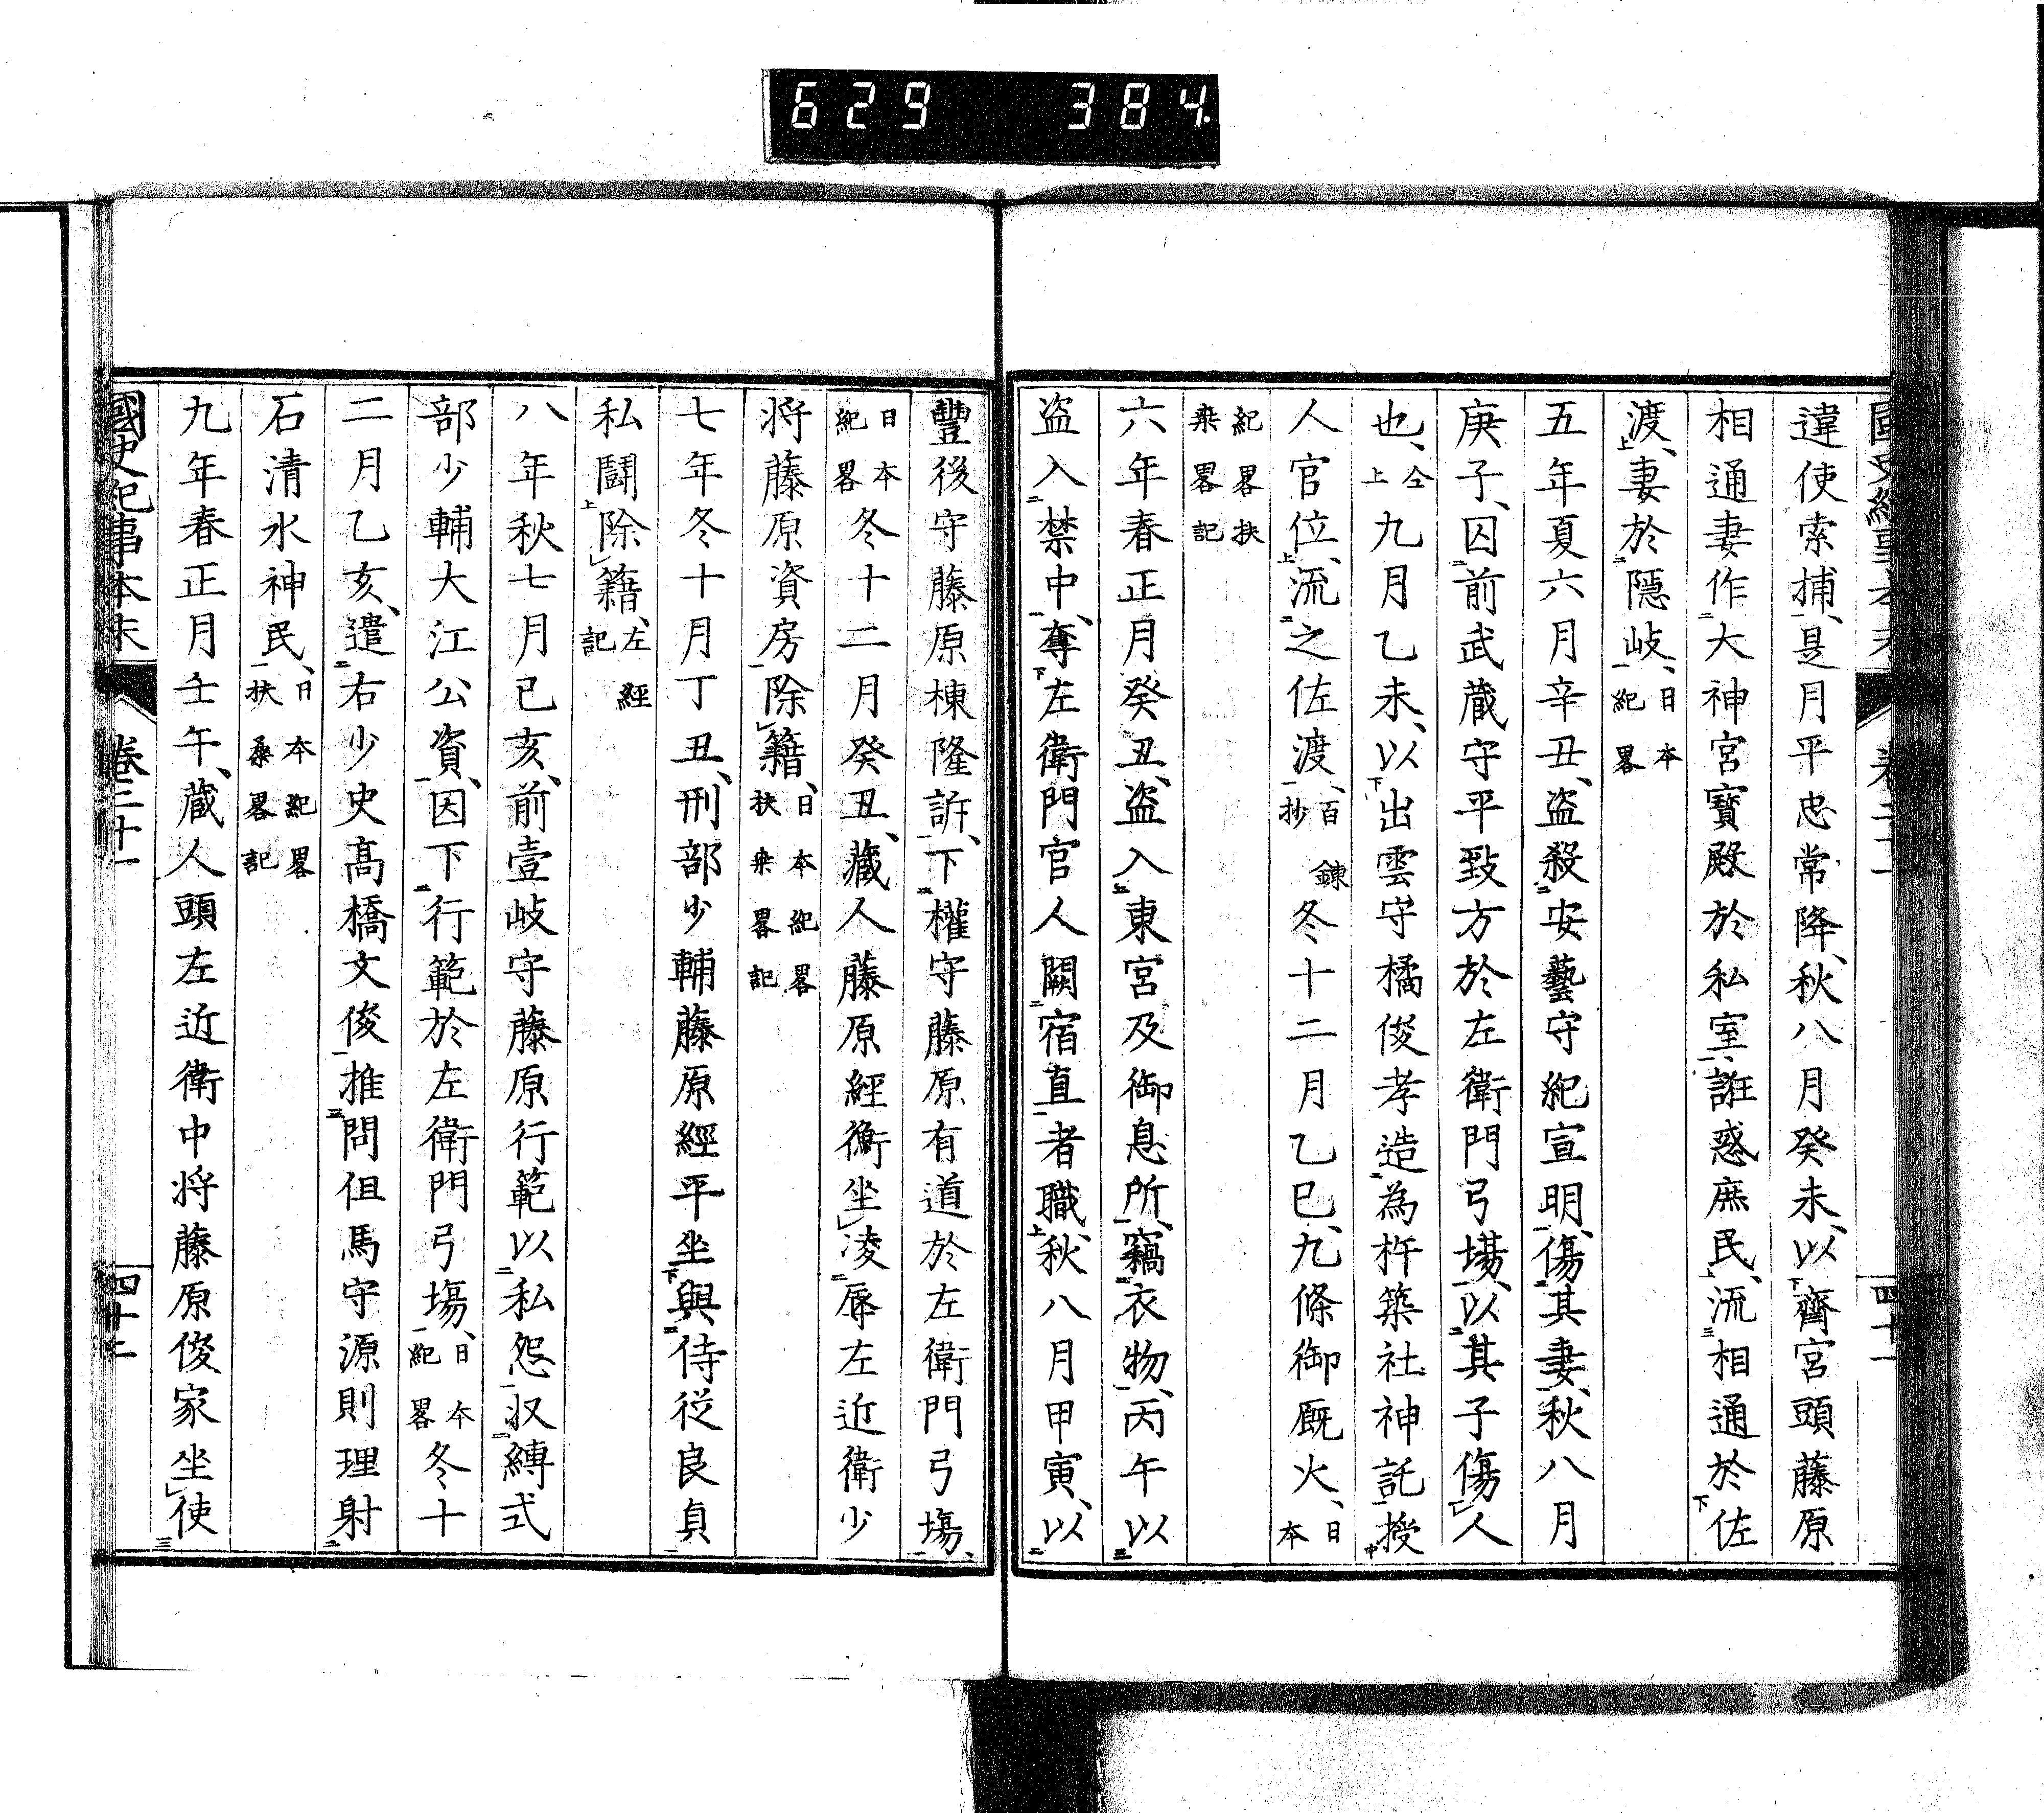 629 384.
違使索捕、是月平忠常降、秋八月癸未、以齋宮頭藤原
相通妻作大神宮寶殿於私室、誑惑庶民、流相通於佐
渡、妻於隱岐、日本紀畧
五年夏六月辛丑、盗殺安藝守紀宣明、傷其妻、秋八月
庚子、囚前武蔵守平致方於左衛門弓場、以其子傷人
也、仝上九月乙未、以出雲守橘俊孝造為杵築社神託授
人官位、流之佐渡、百鍊抄冬十二月乙巳、九條御厩火、日本
紀畧扶桒畧記
六年春正月癸丑、盗入東宮及御息所、竊衣物、丙午以
盗入禁中、奪左衛門官人闕宿直者職、秋八月甲寅、以
豐後守藤原棟隆訴、下權守藤原有道於左衛門弓場、
日本紀畧冬十二月癸丑、蔵人藤原經衡坐凌辱左近衛少
将藤原資房除籍、日本紀畧扶桒畧記
七年冬十月丁丑、刑部少輔藤原經平坐與侍従良貞
私鬪除籍、左經記
八年秋七月己亥、前壹岐守藤原行範以私怨収縛式
部少輔大江公資、因下行範於左衛門弓場、日本紀畧冬十
二月乙亥、遣右少史髙橋文俊推問但馬守源則理射
石清水神民、日本紀畧扶桑畧記
九年春正月壬午、蔵人頭左近衛中将藤原俊家坐使
國史紀事本末 卷三十一 四十二